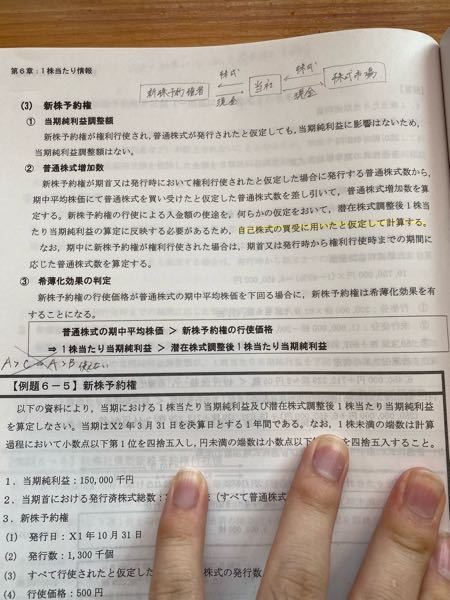 第6章：1株当たり情報
株式 株式
新株予約権者 当社 株式市場
現金 現金
(3) 新株予約権
① 当期純利益調整額
新株予約権が権利行使され，普通株式が発行されたと仮定しても，当期純利益に影響はないため，
当期純利益調整額はない。
② 普通株式増加数
新株予約権が期首又は発行時において権利行使されたと仮定した場合に発行する普通株式数から，
期中平均株価にて普通株式を買い受けたと仮定した普通株式数を差し引いて，普通株式増加数を算
定する。新株予約権の行使による入金額の使途を，何らかの仮定をおいて，潜在株式調整後1株当
たり当期純利益の算定に反映する必要があるため，自己株式の買受に用いたと仮定して計算する。
なお，期中に新株予約権が権利行使された場合は，期首又は発行時から権利行使時までの期間に
応じた普通株式数を算定する。
③ 希薄化効果の判定
新株予約権の行使価格が普通株式の期中平均株価を下回る場合に，新株予約権は希薄化効果を有
することになる。
普通株式の期中平均株価 ＞ 新株予約権の行使価格
⇒ 1株当たり当期純利益 ＞ 潜在株式調整後1株当たり当期純利益
A>C A>B 使えない
【例題6－5】新株予約権
以下の資料により，当期における1株当たり当期純利益及び潜在株式調整後1株当たり当期純利益
を算定しなさい。当期はX2年3月31日を決算日とする1年間である。なお，1株未満の端数は計算
過程において小数点以下第1位を四捨五入し，円未満の端数は小数点以下 を四捨五入すること。
1．当期純利益：150,000千円
2．当期首における発行済株式総数： （すべて普通株式
3．新株予約権
(1) 発行日：X1年10月31日
(2) 発行数：1,300千個
(3) すべて行使されたと仮定した 株式の発行数
(4) 行使価格：500円